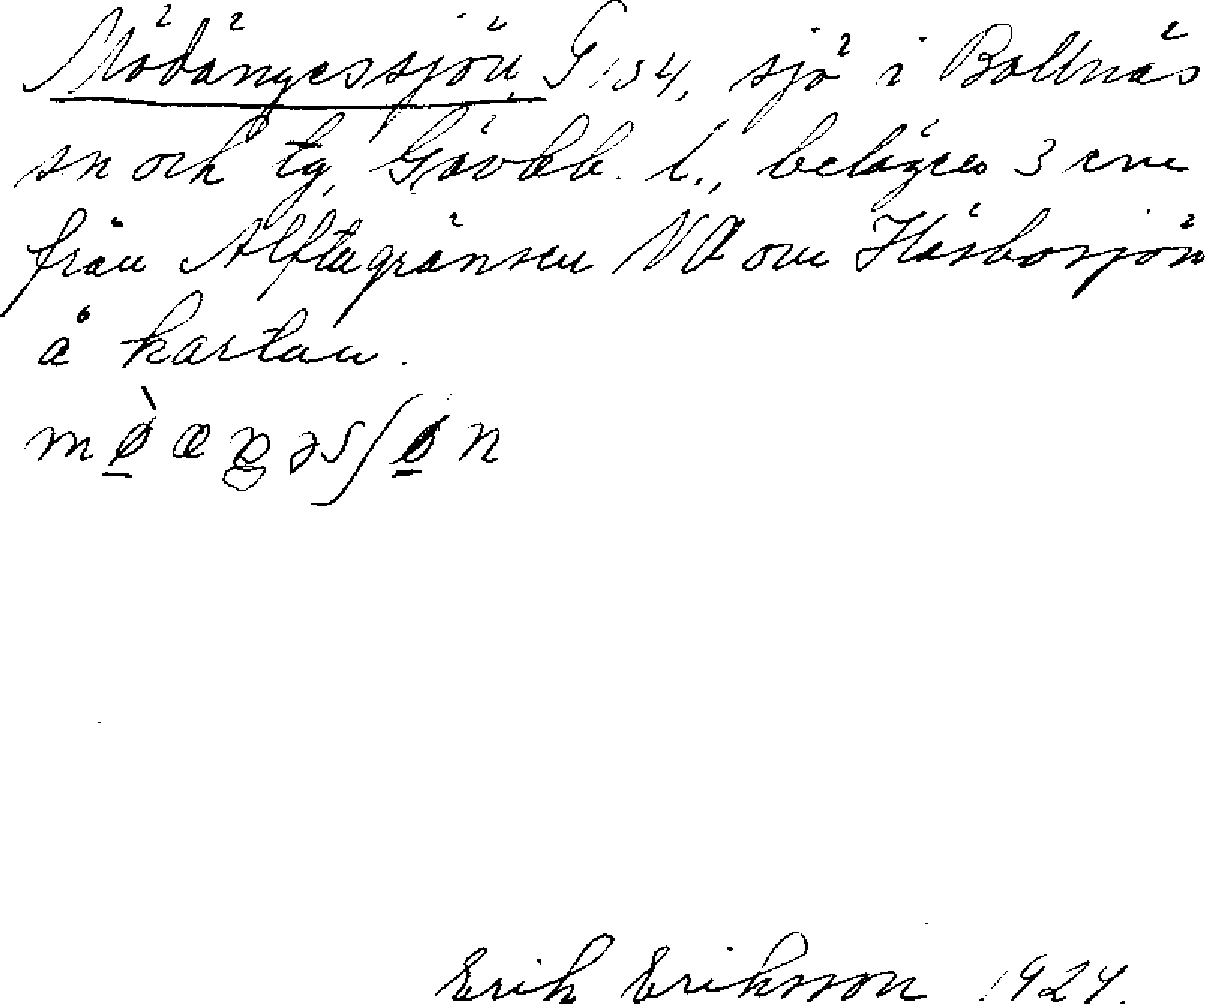 Mödängessjön, G 134, sjö i Bollnäs
sn och tg, Gävleb. l., belägen 3 cm
från Alftagränsen NO om Häsbosjön
å kartan.
Erik Eriksson 1924.